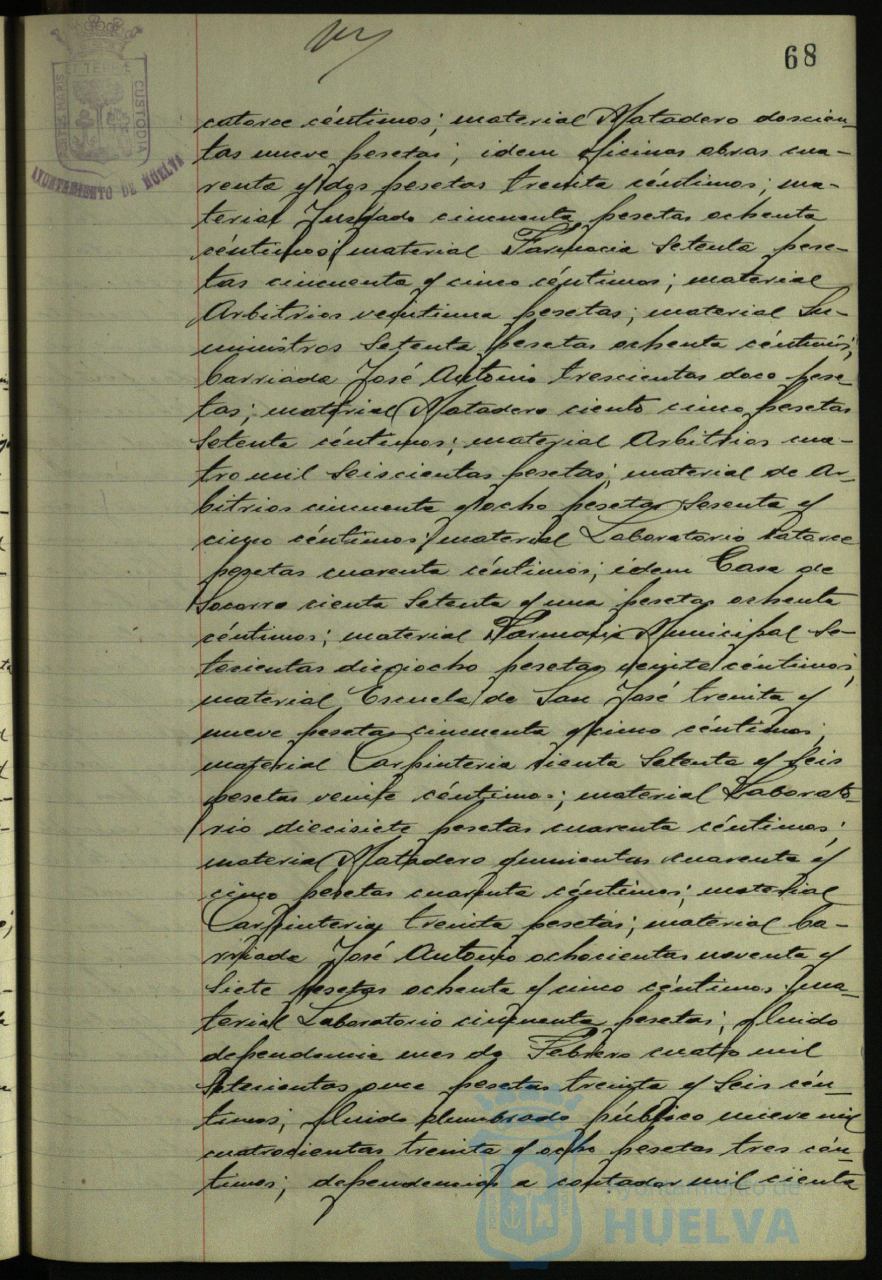 68
PORTUS MARIS ET TERRE CUSTODIA
AYUNTAMIENTO DE HUELVA
catorce céntimos; material Matadero doscien-
tas nueve pesetas; idem oficinas obras cua-
renta y dos pesetas treinta céntimos; ma-
terial Juzgado cincuenta pesetas ochenta
céntimos; material Farmacia Setenta pese-
tas cincuenta y cinco céntimos; material
Arbitrios veintiuna pesetas; material Su-
ministros Setenta pesetas ochenta céntimos;
barriada José Antonio trescientas doce pese-
tas; material Matadero ciento cinco pesetas
Setenta céntimos; material Arbitrios cua-
tro mil Seiscientas pesetas; material de Ar-
bitrios cincuenta y ocho pesetas Sesenta y
cinco céntimos; material Laboratorio catorce
pesetas cuarenta céntimos; idem Casa de
Socorro cienta Setenta y una pesetas ochenta
céntimos; material Farmacia Municipal Se-
tecientas dieziocho pesetas veinte céntimos;
material Escuela de San José treinta y
nueve pesetas cincuenta y cinco céntimos;
material Carpinteria cienta Setenta y Seis
pesetas veinte céntimos; material Laborato-
rio diecisiete pesetas cuarenta céntimos;
material Matadero quinientas cuarenta y
cinco pesetas cuarenta céntimos; material
Carpinteria treinta pesetas; material ba-
rriada José Antonio ochocientas noventa y
Siete pesetas ochenta y cinco céntimos; ma-
terial Laboratorio cincuenta pesetas; fluido
dependencia mes de Febrero cuatro mil
Setecientas once pesetas treinta y Seis cén-
timos; fluido alumbrado público nueve mil
cuatrocientas treinta y ocho pesetas tres cén-
timos; dependencias a contador mil cienta
Ayuntamiento de
HUELVA